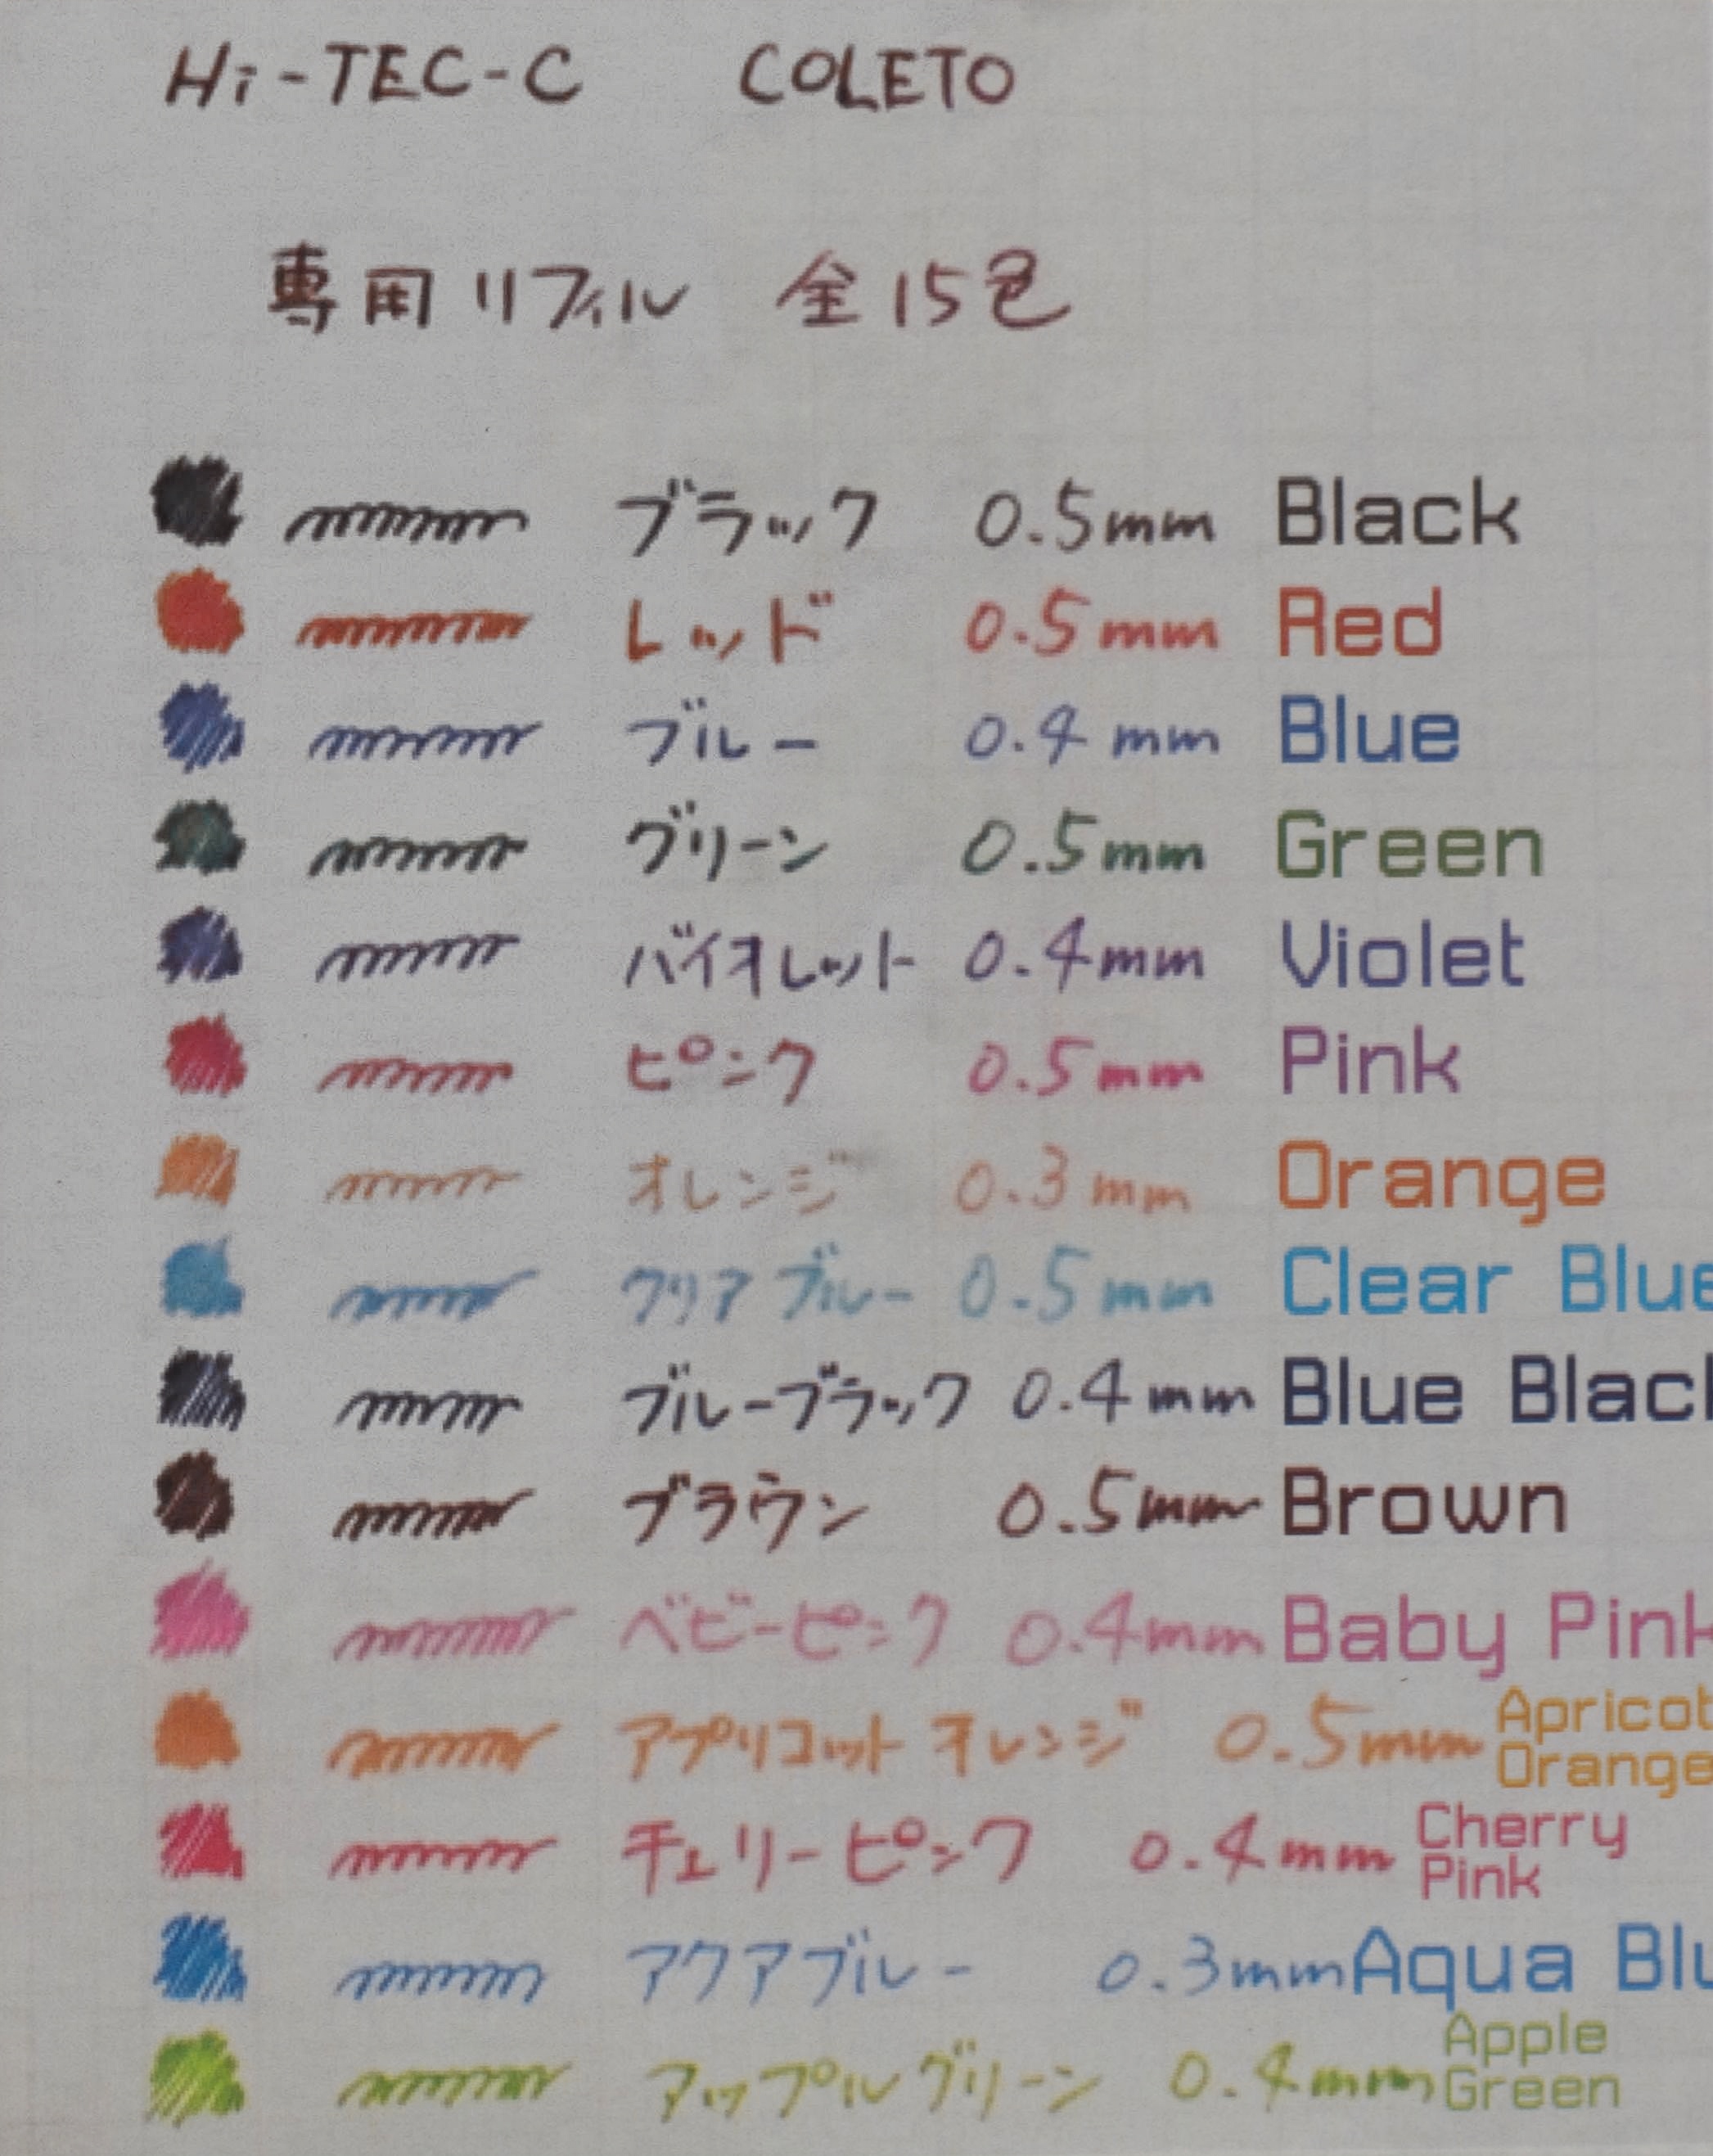 Hi-TEC-C COLETO
専用リフィル 全15色
ブラック 0.5mm Black
レッド 0.5mm Red
ブルー 0.4mm Blue
グリーン 0.5mm Green
バイオレット 0.4mm Violet
ピンク 0.5mm Pink
オレンジ 0.3mm Orange
クリアブルー 0.5mm Clear Blue
ブルーブラック 0.4mm Blue Black
ブラウン 0.5mm Brown
ベビーピンク 0.4mm Baby Pink
アプリコットオレンジ 0.5mm Apricot Orange
チェリーピンク 0.4mm Cherry Pink
アクアブルー 0.3mm Aqua Blu
アップルグリーン 0.4mm Apple Green